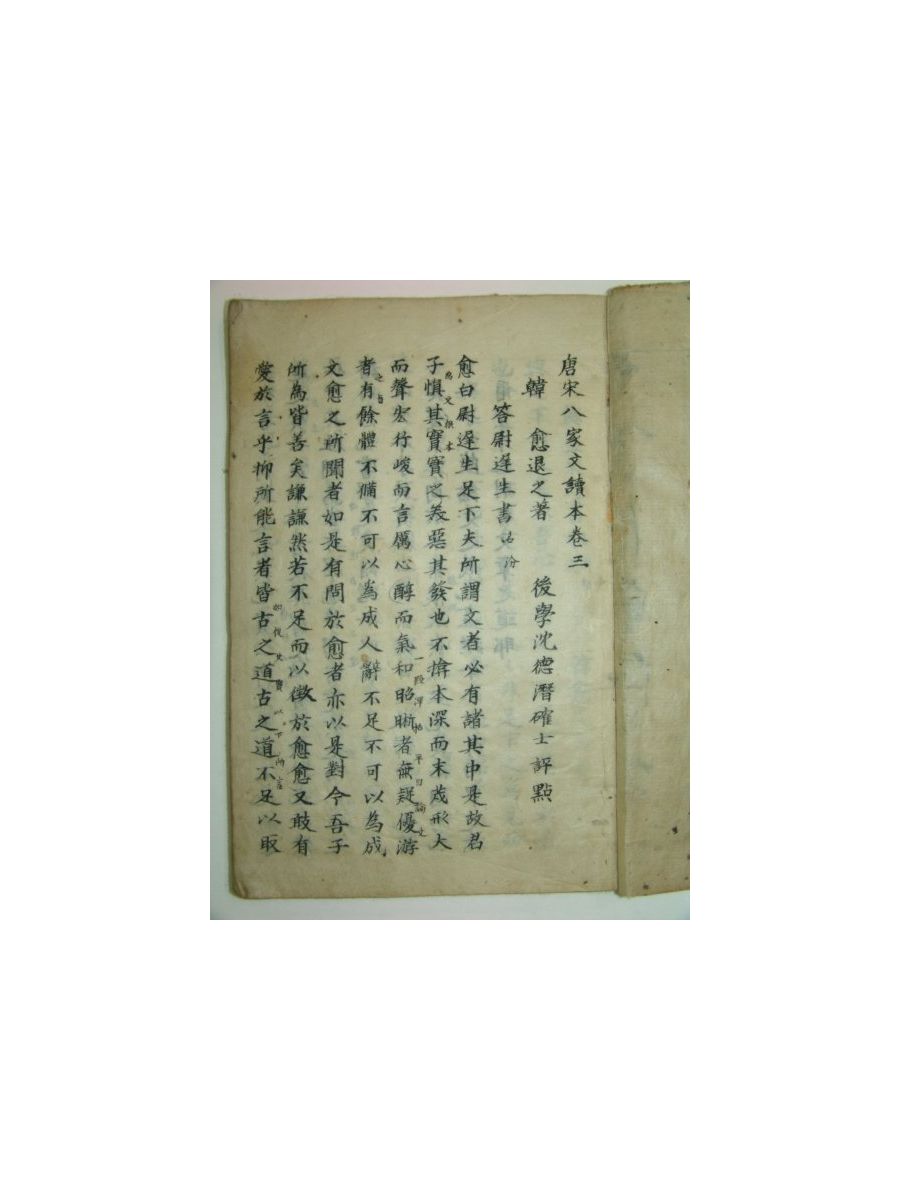 唐宋八家文讀本卷三
韓 愈退之著 後學沈德潛確士評點
答尉遲生書 汾
愈白尉遲生足下夫所謂文者必有諸其中是故君
子慎其實實之美惡其發也不揜本深而末茂形大
而聲宏行峻而言厲心醇而氣和昭晰者無疑優游
者有餘體不備不可以為成人辭不足不可以為成
文愈之所聞者如是有問於愈者亦以是對今吾子
所為皆善矣謙謙然若不足而以徵於愈愈又敢有
愛於言乎抑所能言者皆古之道古之道不足以取